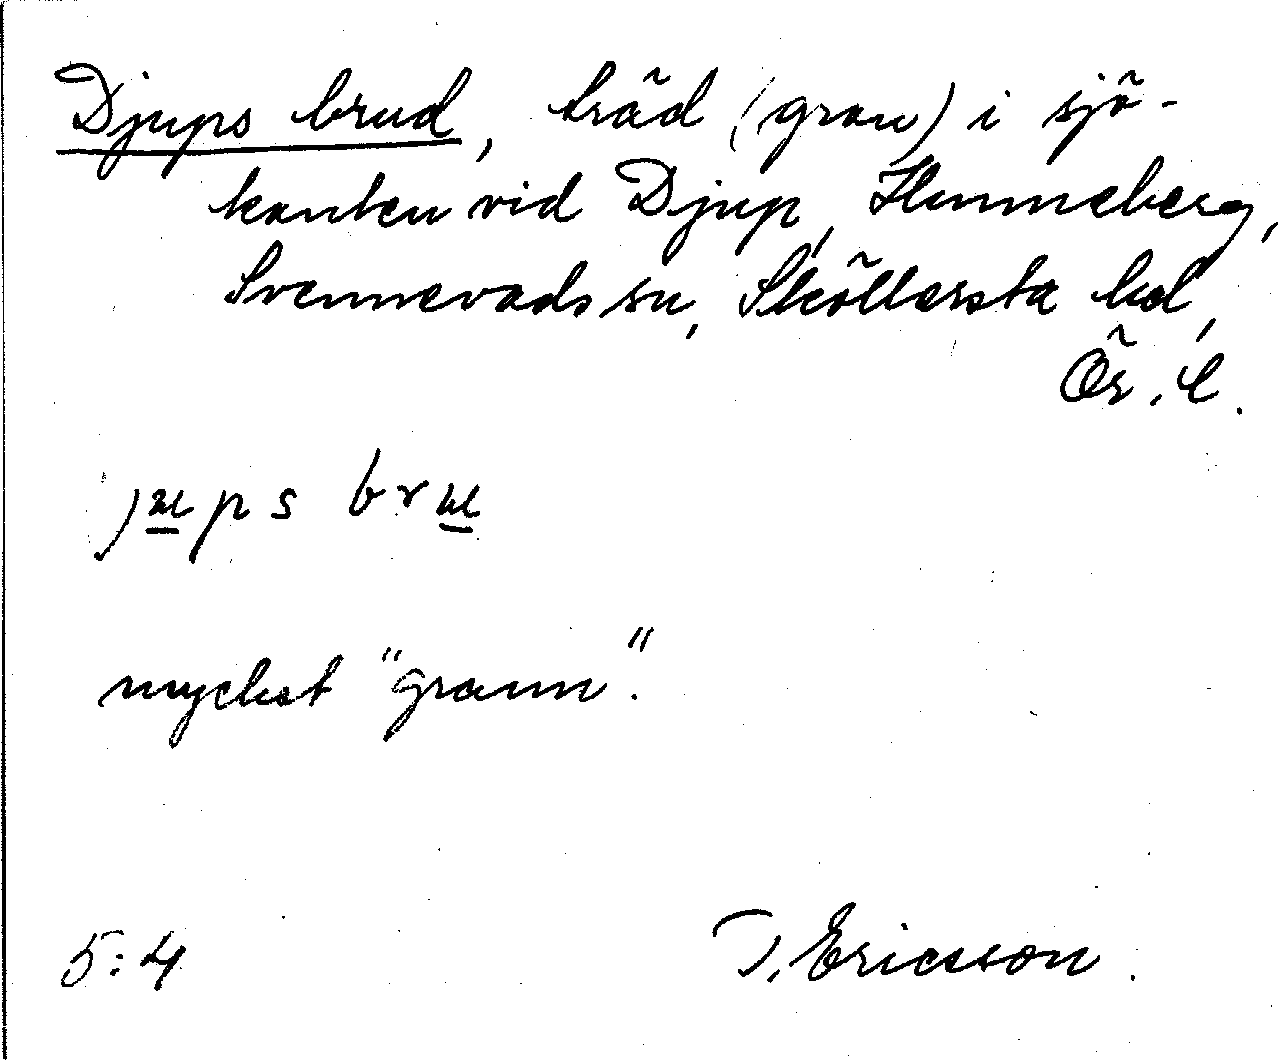 Djups brud, träd (gran) i sjö-
kanten vid Djup, Hunneberg,
Svennevads sn, Sköllersta hd,
Ör. l.
jups bru
mycket "grann".
5:4
T. Ericsson.